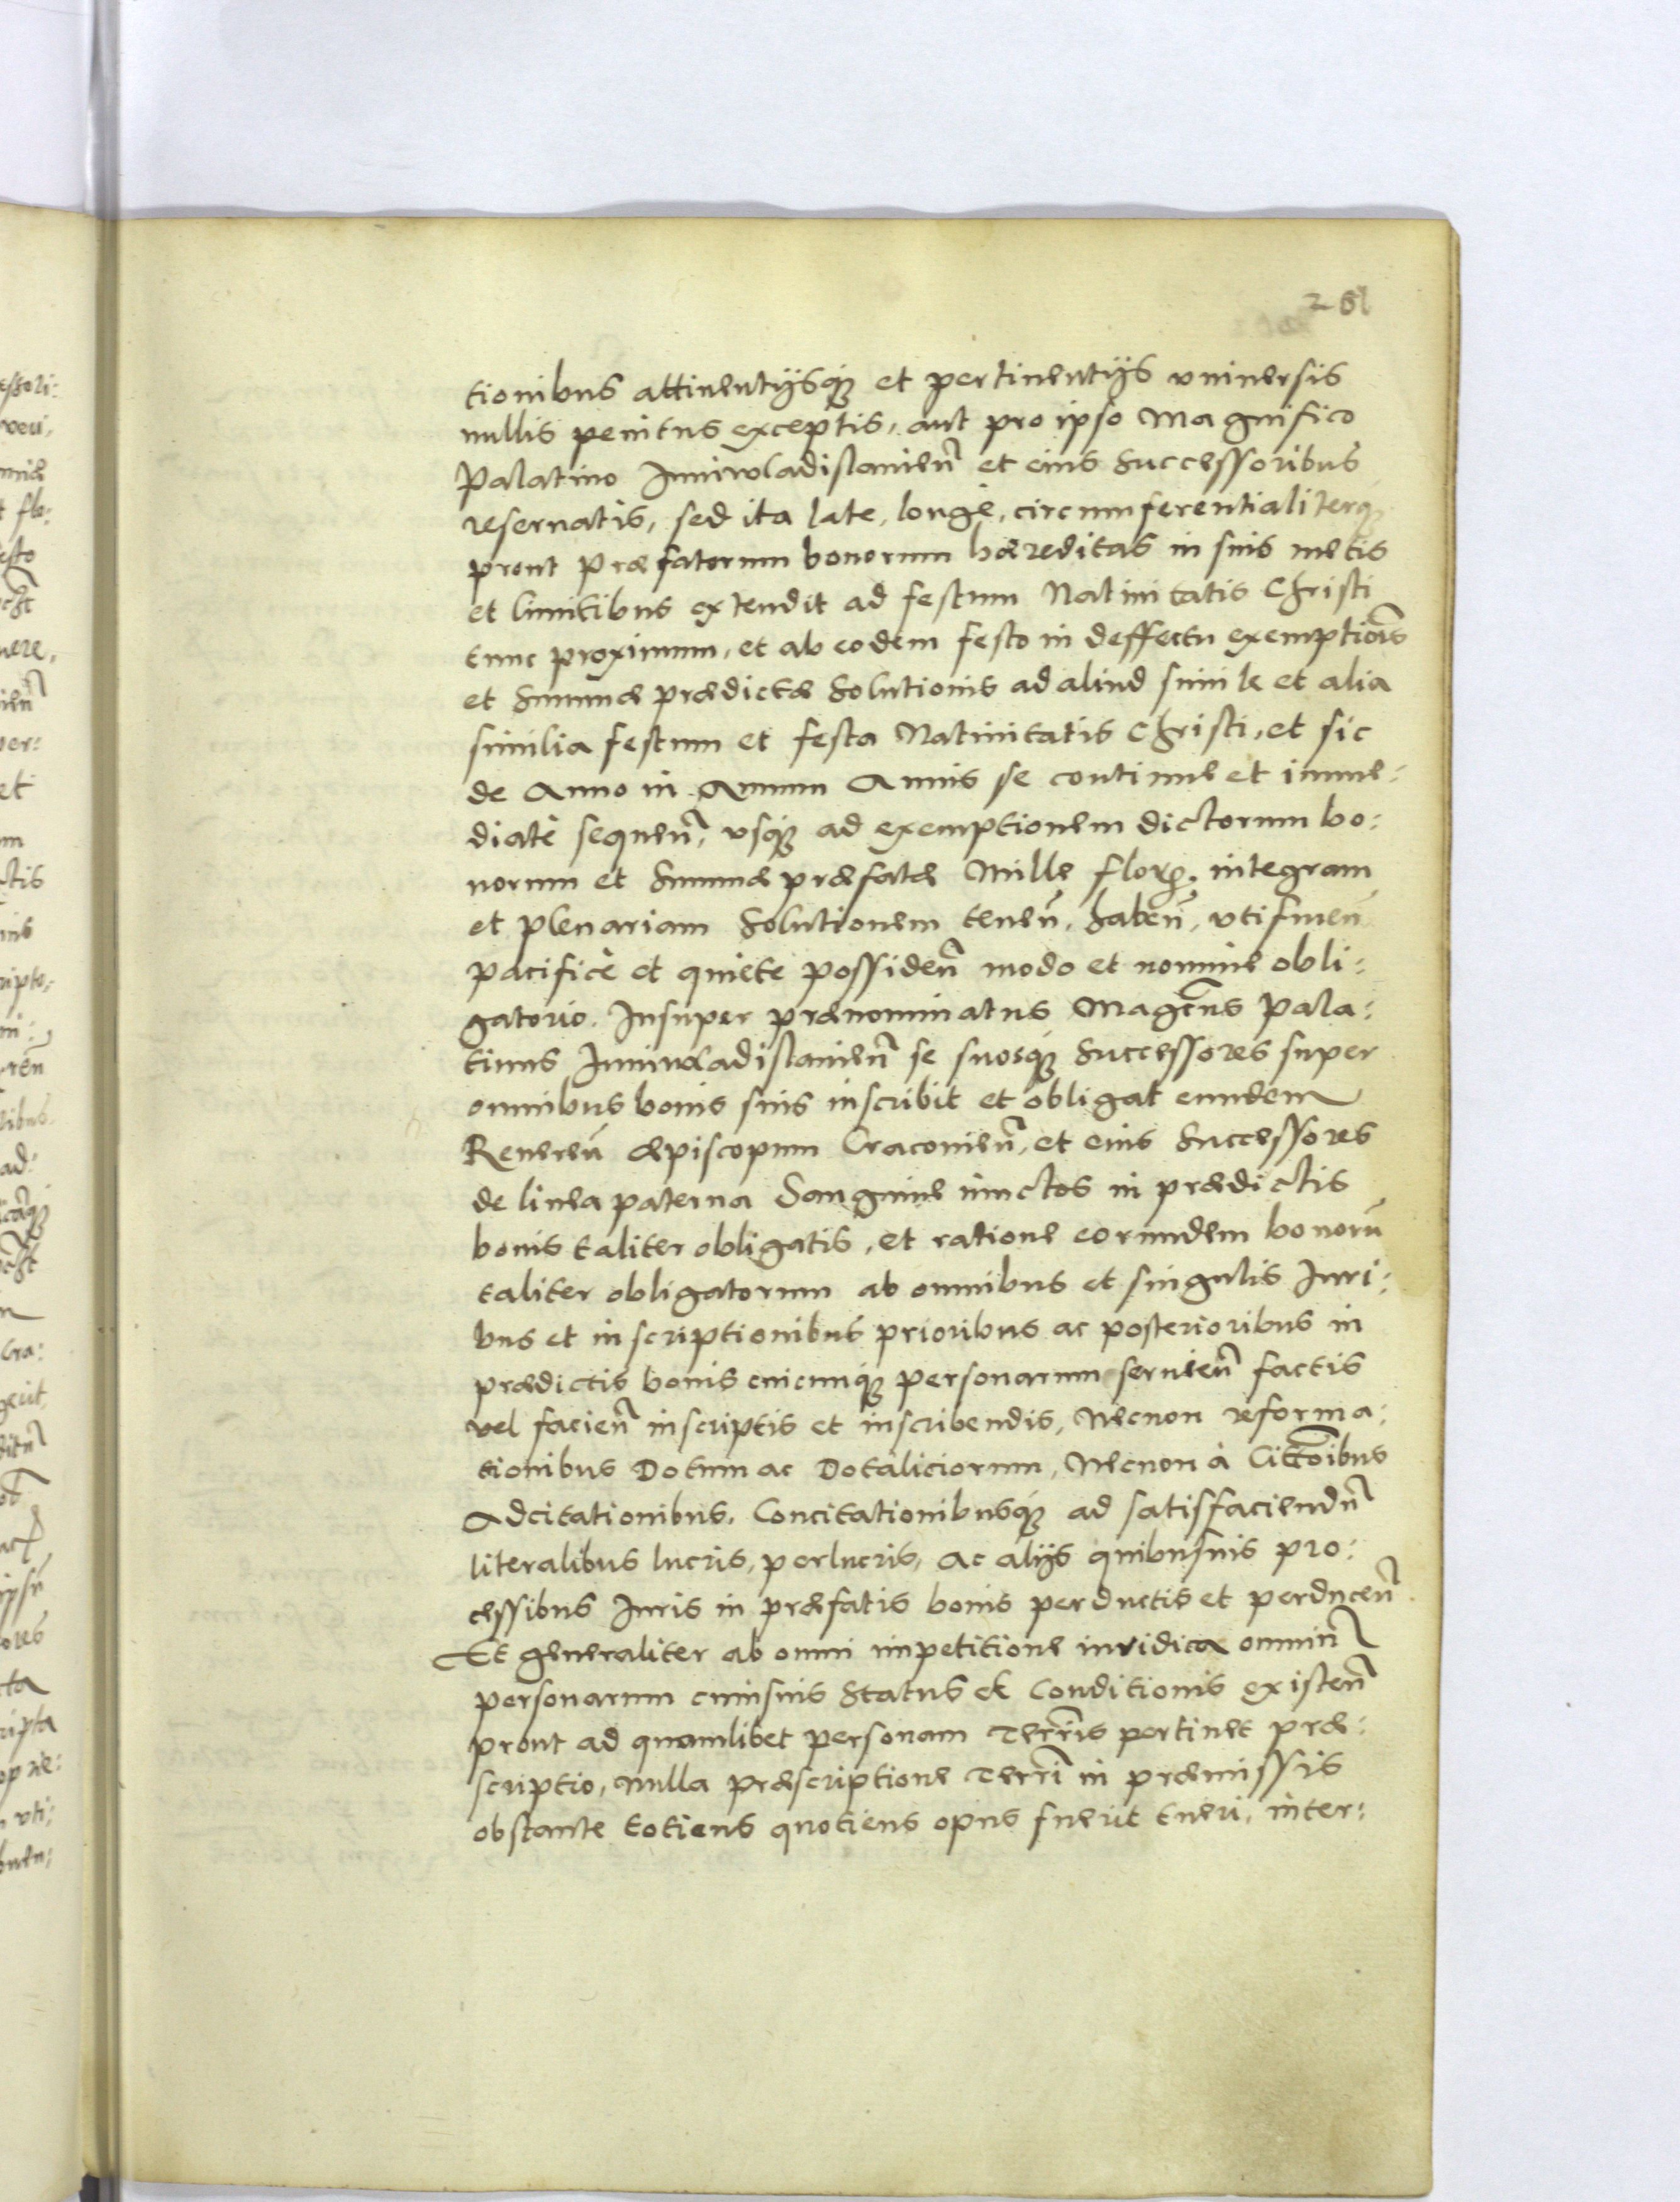 261
tionibus attinentijsq̃ et pertinentijs vniuersis
nullis penitus exceptis, aut pro ipso Magnifico
Palatino Iuniwladislauien̄ et eius Successoribus
reseruatis, sed ita late, longè, circumferentialiterq̃
prout præfatorum bonorum hæreditas in suis metis
et limitibus extendit ad festum Natiuitatis Christi
tunc proximum, et ab eodem festo in deffectu exemptiōis
et Summæ prædictæ Solutionis ad aliud simile et alia
similia festum et festa Natiuitatis Christi, et sic
de Anno in Annum Annis se continue et imme:
diatè sequen̄, vsq̃ ad exemptionem dictorum bo:
norum et Summæ præfatæ Mille flor. integram
et plenariam Solutionem tenen̄, haben̄, vtifruen̄
pacificè et quiete possiden̄ modo et nomine obli:
gatorio. Insuper prænominatus Magc̄us Pala:
tinus Iuniwladislauien̄ se suosq̃ Successores super
omnibus bonis suis inscribit et obligat eundem
Reueren̄ Æpiscopum Cracouien̄, et eius Successores
de linea paterna Sanguine iunctos in prædictis
bonis taliter obligatis, et ratione eorundem bonorū
taliter obligatorum ab omnibus et singulis Iuri:
bus et inscriptionibus prioribus ac posterioribus in
prædictis bonis cuicunq̃ personarum seruien̄ factis
vel facien̄ inscriptis et inscribendis, Necnon reforma:
tionibus Dotum ac Dotaliciorum, Necnon à Cittōibus
Adcitationibus, Concitationibusq̃ ad satisfaciendn̄
literalibus lucris, perlucris, ac alijs quibusuis pro:
cessibus Iuris in præfatis bonis perductis et perducen̄
Et generaliter ab omni impetitione iuridica omnin̄
personarum cuiusuis Status et Conditionis existen̄
prout ad quamlibet personam Terr̄is pertinet præ:
scriptio, Nulla præscriptione Terr̄i in præmissis
obstante totiens quotiens opus fuerit tueri, inter: